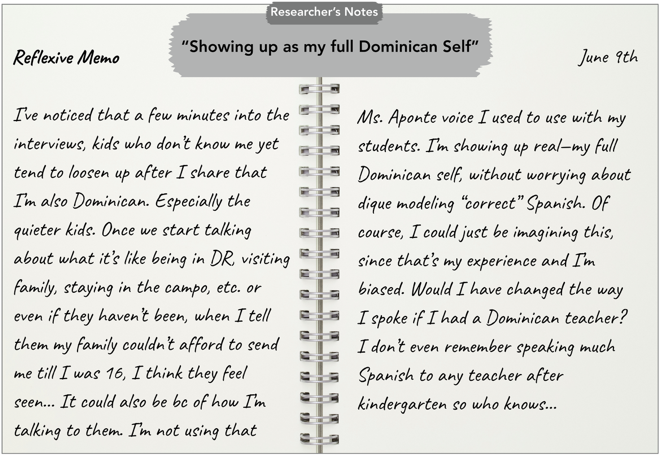 Researcher's Notes
"Showing up as my full Dominican Self"
Reflexive Memo
June 9th
I've noticed that a few minutes into the
interviews, kids who don't know me yet
tend to loosen up after I share that
I'm also Dominican. Especially the
quieter kids. Once we start talking
about what it's like being in DR, visiting
family, staying in the campo, etc. or
even if they haven't been, when I tell
them my family couldn't afford to send
me till I was 16, I think they feel
seen... It could also be bc of how I'm
talking to them. I'm not using that
Ms. Aponte voice I used to use with my
students. I'm showing up real—my full
Dominican self, without worrying about
dique modeling "correct" Spanish. Of
course, I could just be imagining this,
since that's my experience and I'm
biased. Would I have changed the way
I spoke if I had a Dominican teacher?
I don't even remember speaking much
Spanish to any teacher after
kindergarten so who knows...